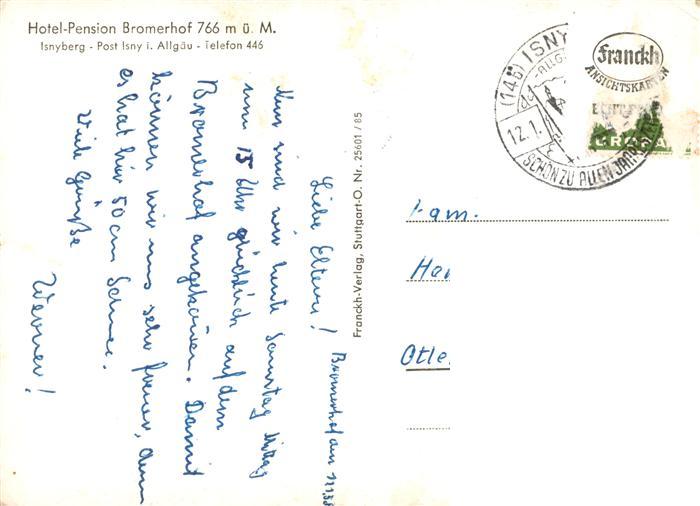 Hotel-Pension Bromerhof 766 m ü. M.
Isnyberg - Post Isny i. Allgäu - Telefon 446
Bromerhof am
Liebe Eltern!
Nun sind wir heute Sonntag Mittag
um 15 Uhr glücklich auf dem
Bromerhof angekommen. Damit
können wir uns sehr freuen, denn
es hat hier 50 cm Schnee.
Viele Grüße
Werner!
Franckh-Verlag, Stuttgart-O. Nr. 25601/85
(14b) ISNY
12.1.
SCHÖN ZU ALLEN JAHRES
Franckh
ANSICHTSKARTEN
Fam.